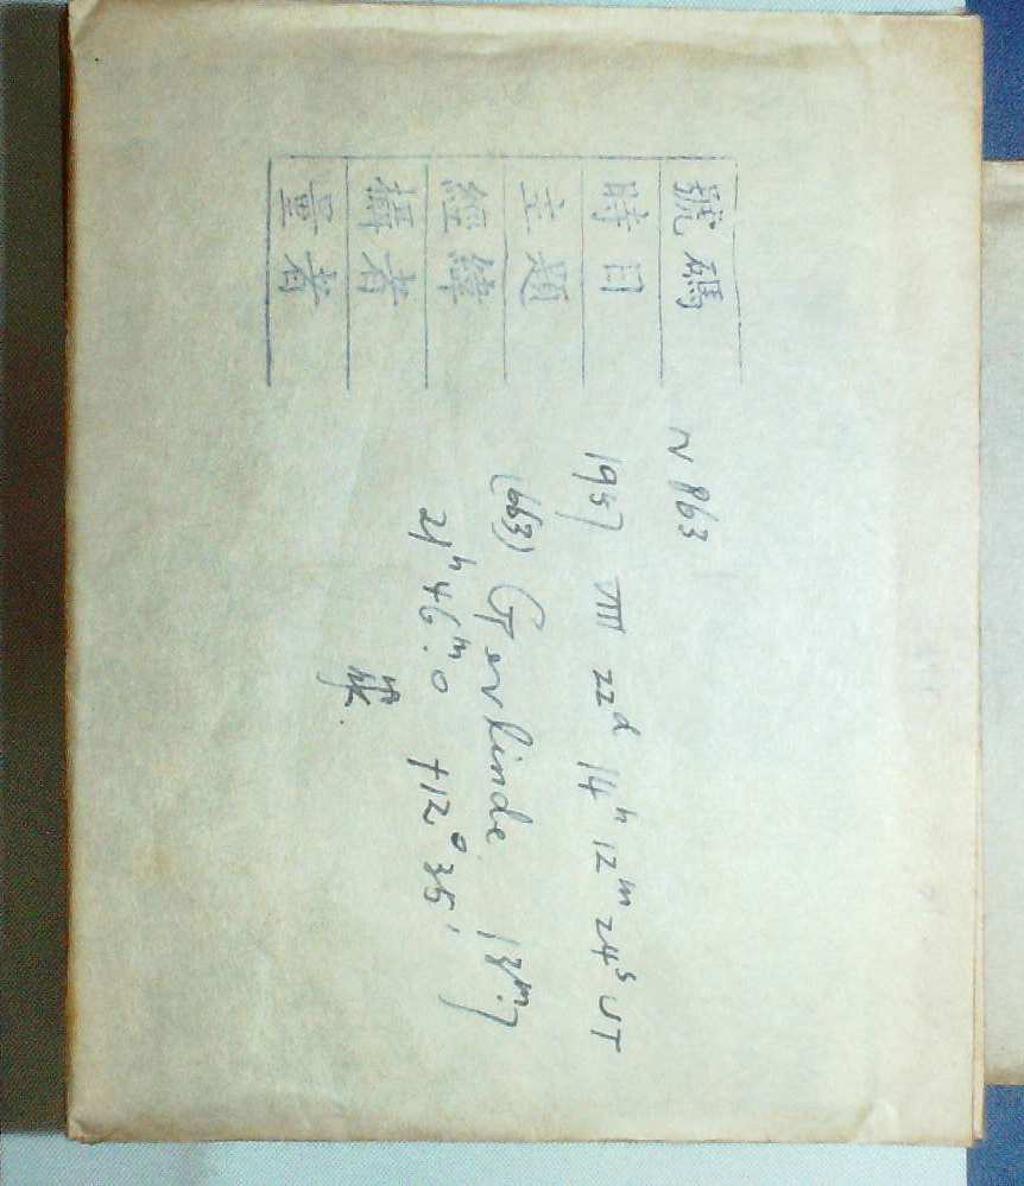 號碼 N 863
時日 1957 VIII 22ᵈ 14ʰ 12ᵐ 24ˢ UT
主題 (663) Gerlinde 13ᵐ.7
經緯 21ʰ 46ᵐ.0 +12° 35'
攝者
量者